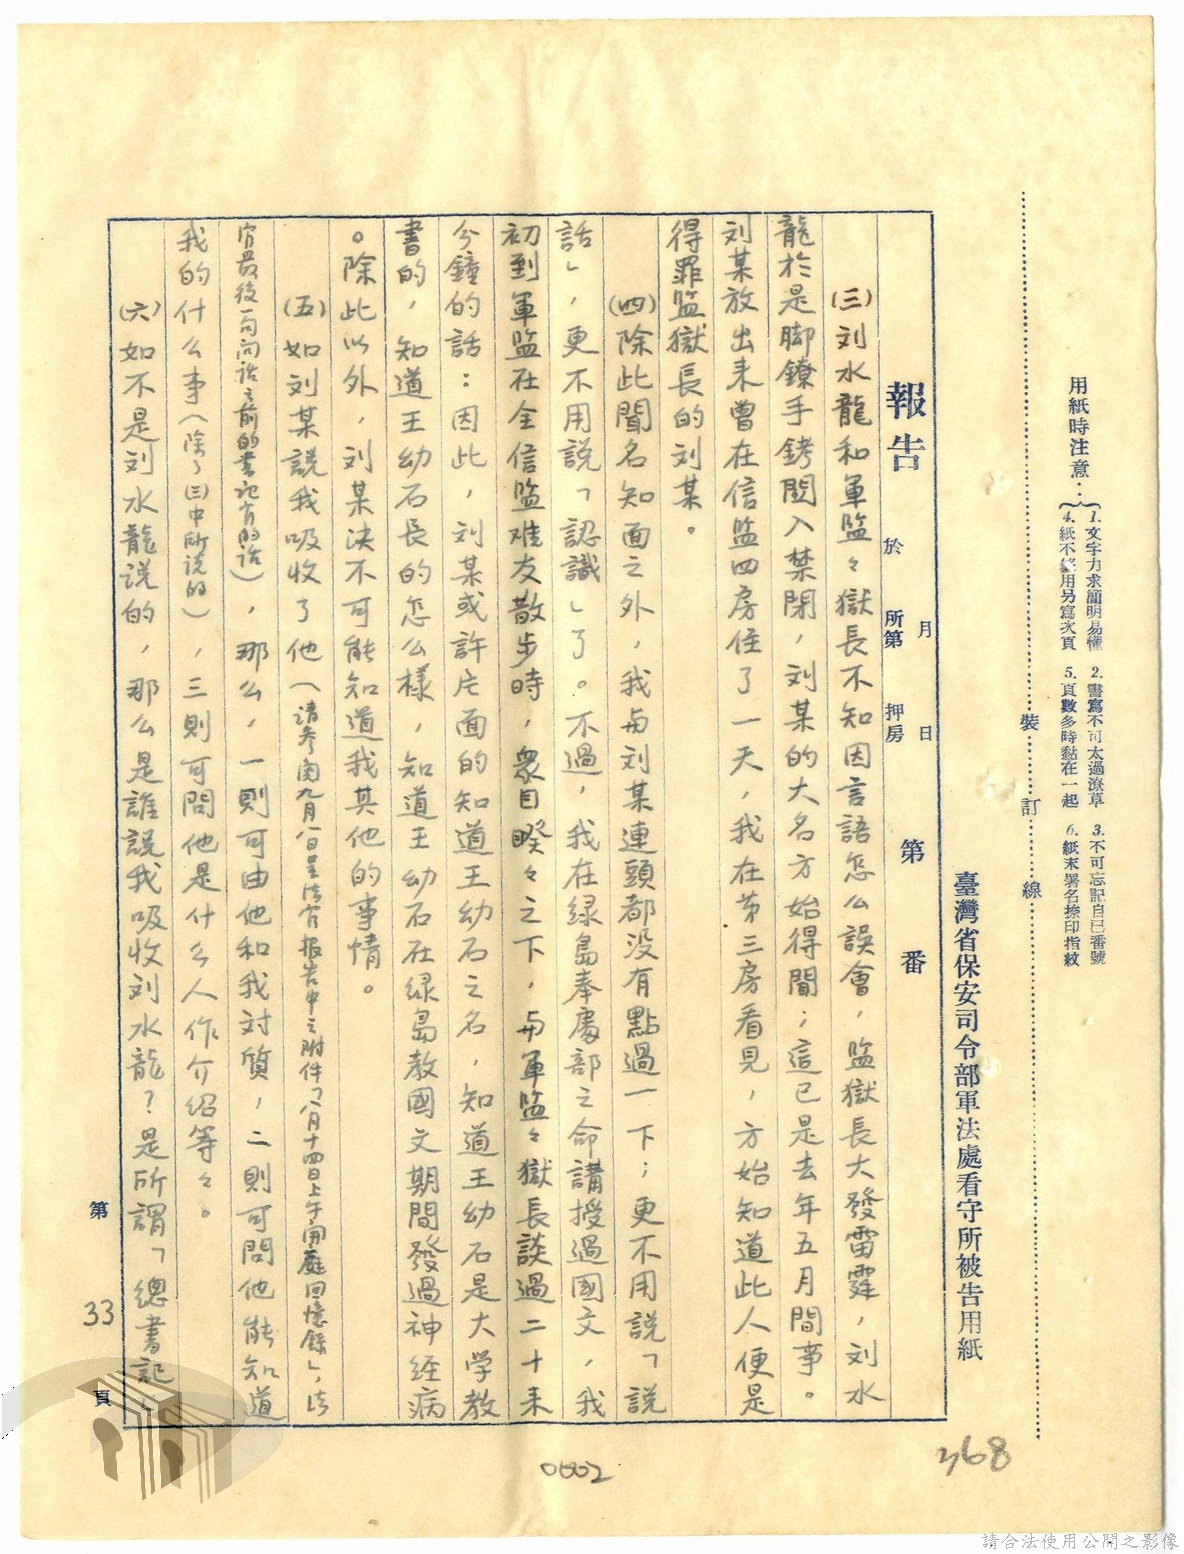 用紙時注意：
1.文字力求簡明易懂 2.書寫不可太過潦草 3.不可忘記自己番號
4.紙不夠用另寫次頁 5.頁數多時黏在一起 6.紙末署名捺印指紋
裝訂線
臺灣省保安司令部軍法處看守所被告用紙
報告 於 所第 押房 月 日 第 番
(三)刘水龍和軍監々獄長不知因言語怎么誤會，監獄長大發雷霆，刘水
龍於是脚鐐手銬関入禁閉，刘某的大名方始得聞；這已是去年五月間事。
刘某放出来曾在信監四房住了一天，我在第三房看見，方始知道此人便是
得罪監獄長的刘某。
(四)除此聞名知面之外，我与刘某連頭都没有點過一下；更不用説「説
話」，更不用説「認識」了。不過，我在绿島奉處部之命講授過國文，我
初到軍監在全信監难友散步時，衆目睽々之下，与軍監々獄長談過二十来
分鐘的話：因此，刘某或許片面的知道王幼石之名，知道王幼石是大学教
書的，知道王幼石長的怎么樣，知道王幼石在绿島教國文期間發過神経病
。除此以外，刘某决不可能知道我其他的事情。
(五)如刘某説我吸收了他（請参閲九月八日呈法官报告中之附件「八月十四日上午開庭回憶錄」，法
官最後一句问話之前的書記官的话），那么，一則可由他和我対質，二則可問他能知道
我的什么事（除了(三)中所说的），三則可問他是什么人作介绍等々。
(六)如不是刘水龍説的，那么是誰説我吸收刘水龍？是所謂「總書記」
第 33 頁
0602
368
請合法使用公開之影像